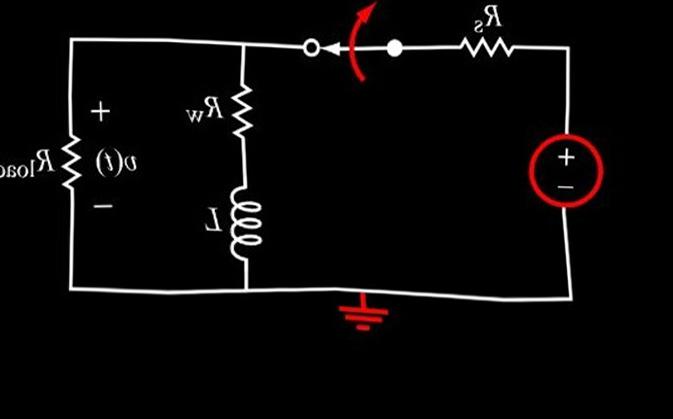 R_s
R_w
+
v(t)
−
R_load
L
+
−